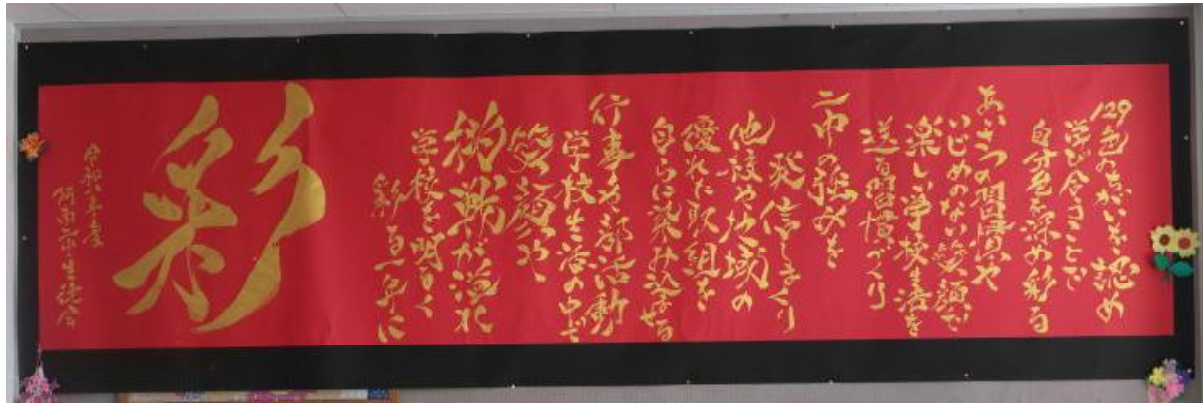 129色のちがいを認め
学び合うことで
自分色を深め彩る
あいさつの習慣や
いじめのない笑顔で
楽しい学校生活を
送る習慣づくり
二中の強みを
発信しまくり
他校や地域の
優れた取組を
自らに染み込ませる
行事や部活動
学校生活の中で
笑顔
挑戦が溢れ
学校を明るく
彩る一年に
彩
生徒会